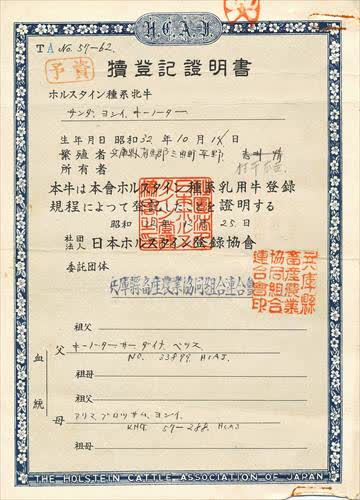 H.C.A.J.
TA No. 57-62
予資
犢登記證明書
ホルスタイン種系牝牛
サンダ、ヨンイ、キーノーター
生年月日 昭和32年10月14日
繁殖者 兵庫縣有馬郡三田町
所有者
本牛は本會ホルスタイン種系乳用牛登録
規程によって登記したことを證明する
昭和 25日
社団法人 日本ホルスタイン登録協會
委託団体
兵庫縣畜産農業協同組合連合會
兵庫縣
畜産農業
協同組合
連合會印
血統
祖父
父 キーノーターサーダイナ ベツス
NO. 33899 HCAJ.
祖母
祖父
母 アリスブロツサム、ヨンイ
KHB 57-288 HCAJ
祖母
THE HOLSTEIN CATTLE ASSOCIATION OF JAPAN